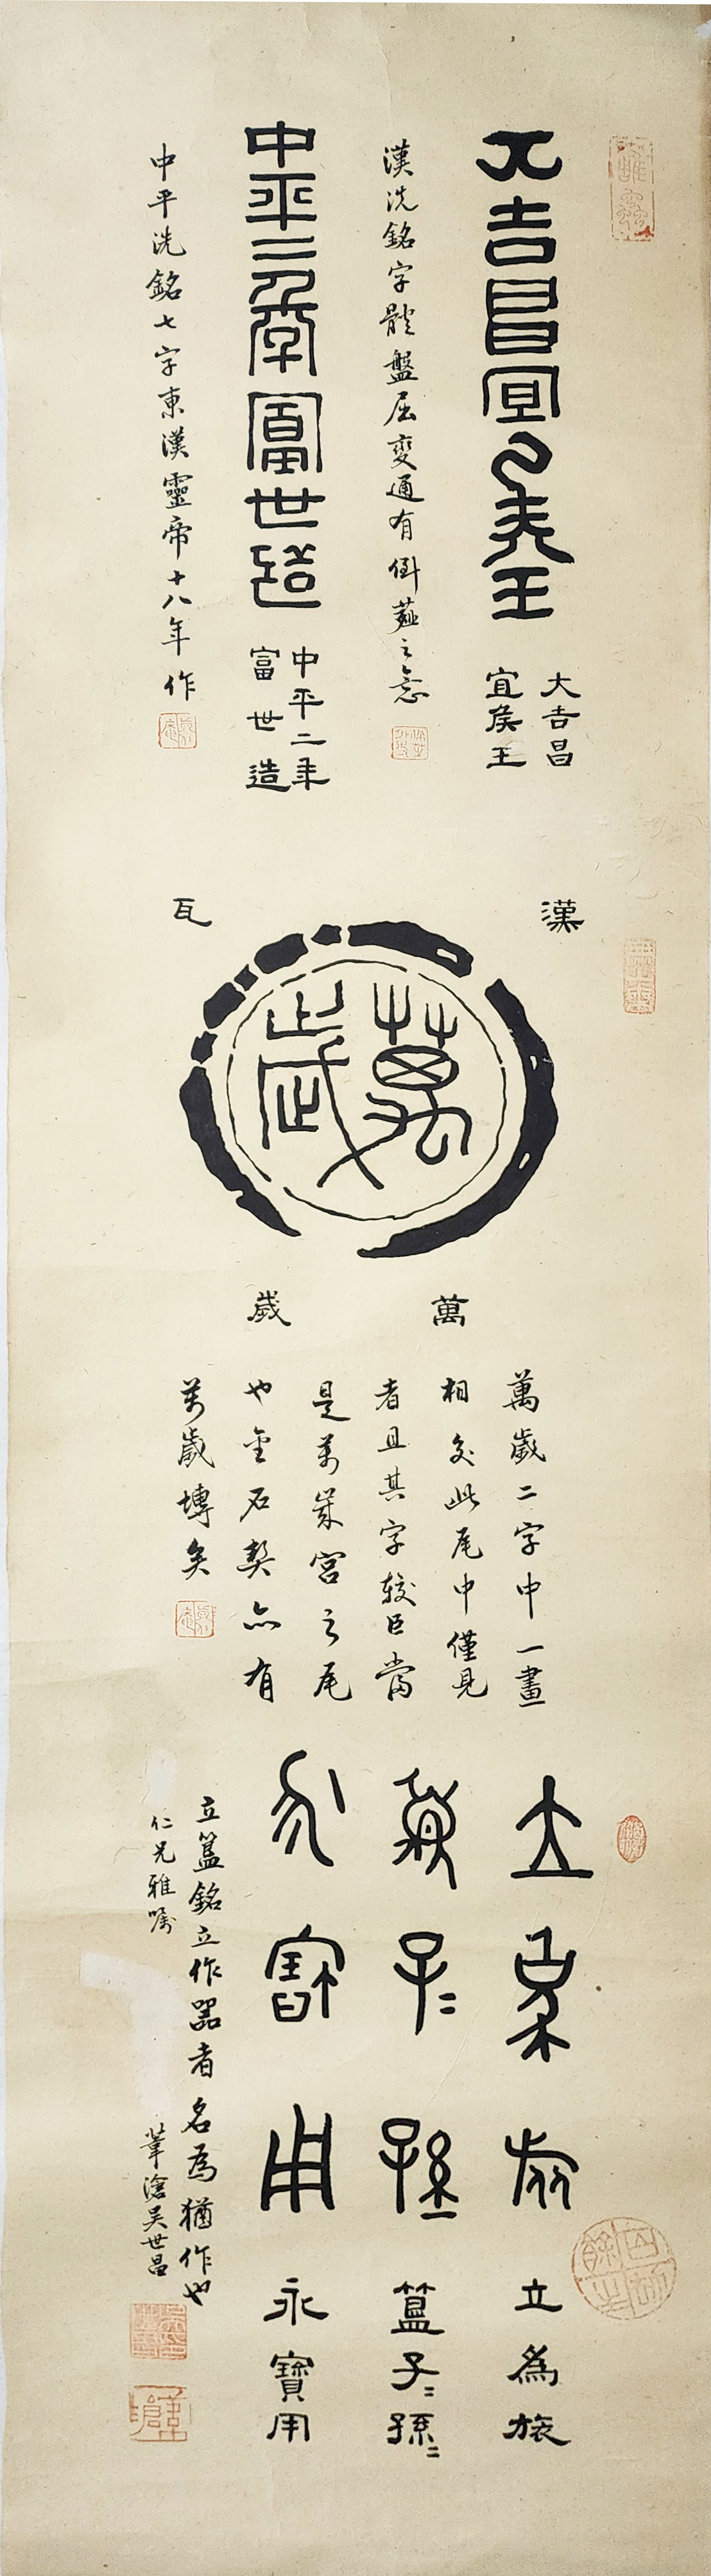 大吉昌宜侯王
大吉昌
宜矦王
漢洗銘字體盤屈變通有倒薤之意
中平二年富世造
中平二年
富世造
中平洗銘七字東漢靈帝十八年作
漢瓦
萬歲
萬歲
萬歲二字中一畫
相交此瓦中僅見
者且其字較巨當
是萬歲宮之瓦
也金石契亦有
萬歲塼矣
立為旅
簋子〻孫〻
永寶用
立為旅
簋子〻孫〻
永寶用
立簋銘立作器者名為猶作也
仁兄雅囑
葦滄吳世昌